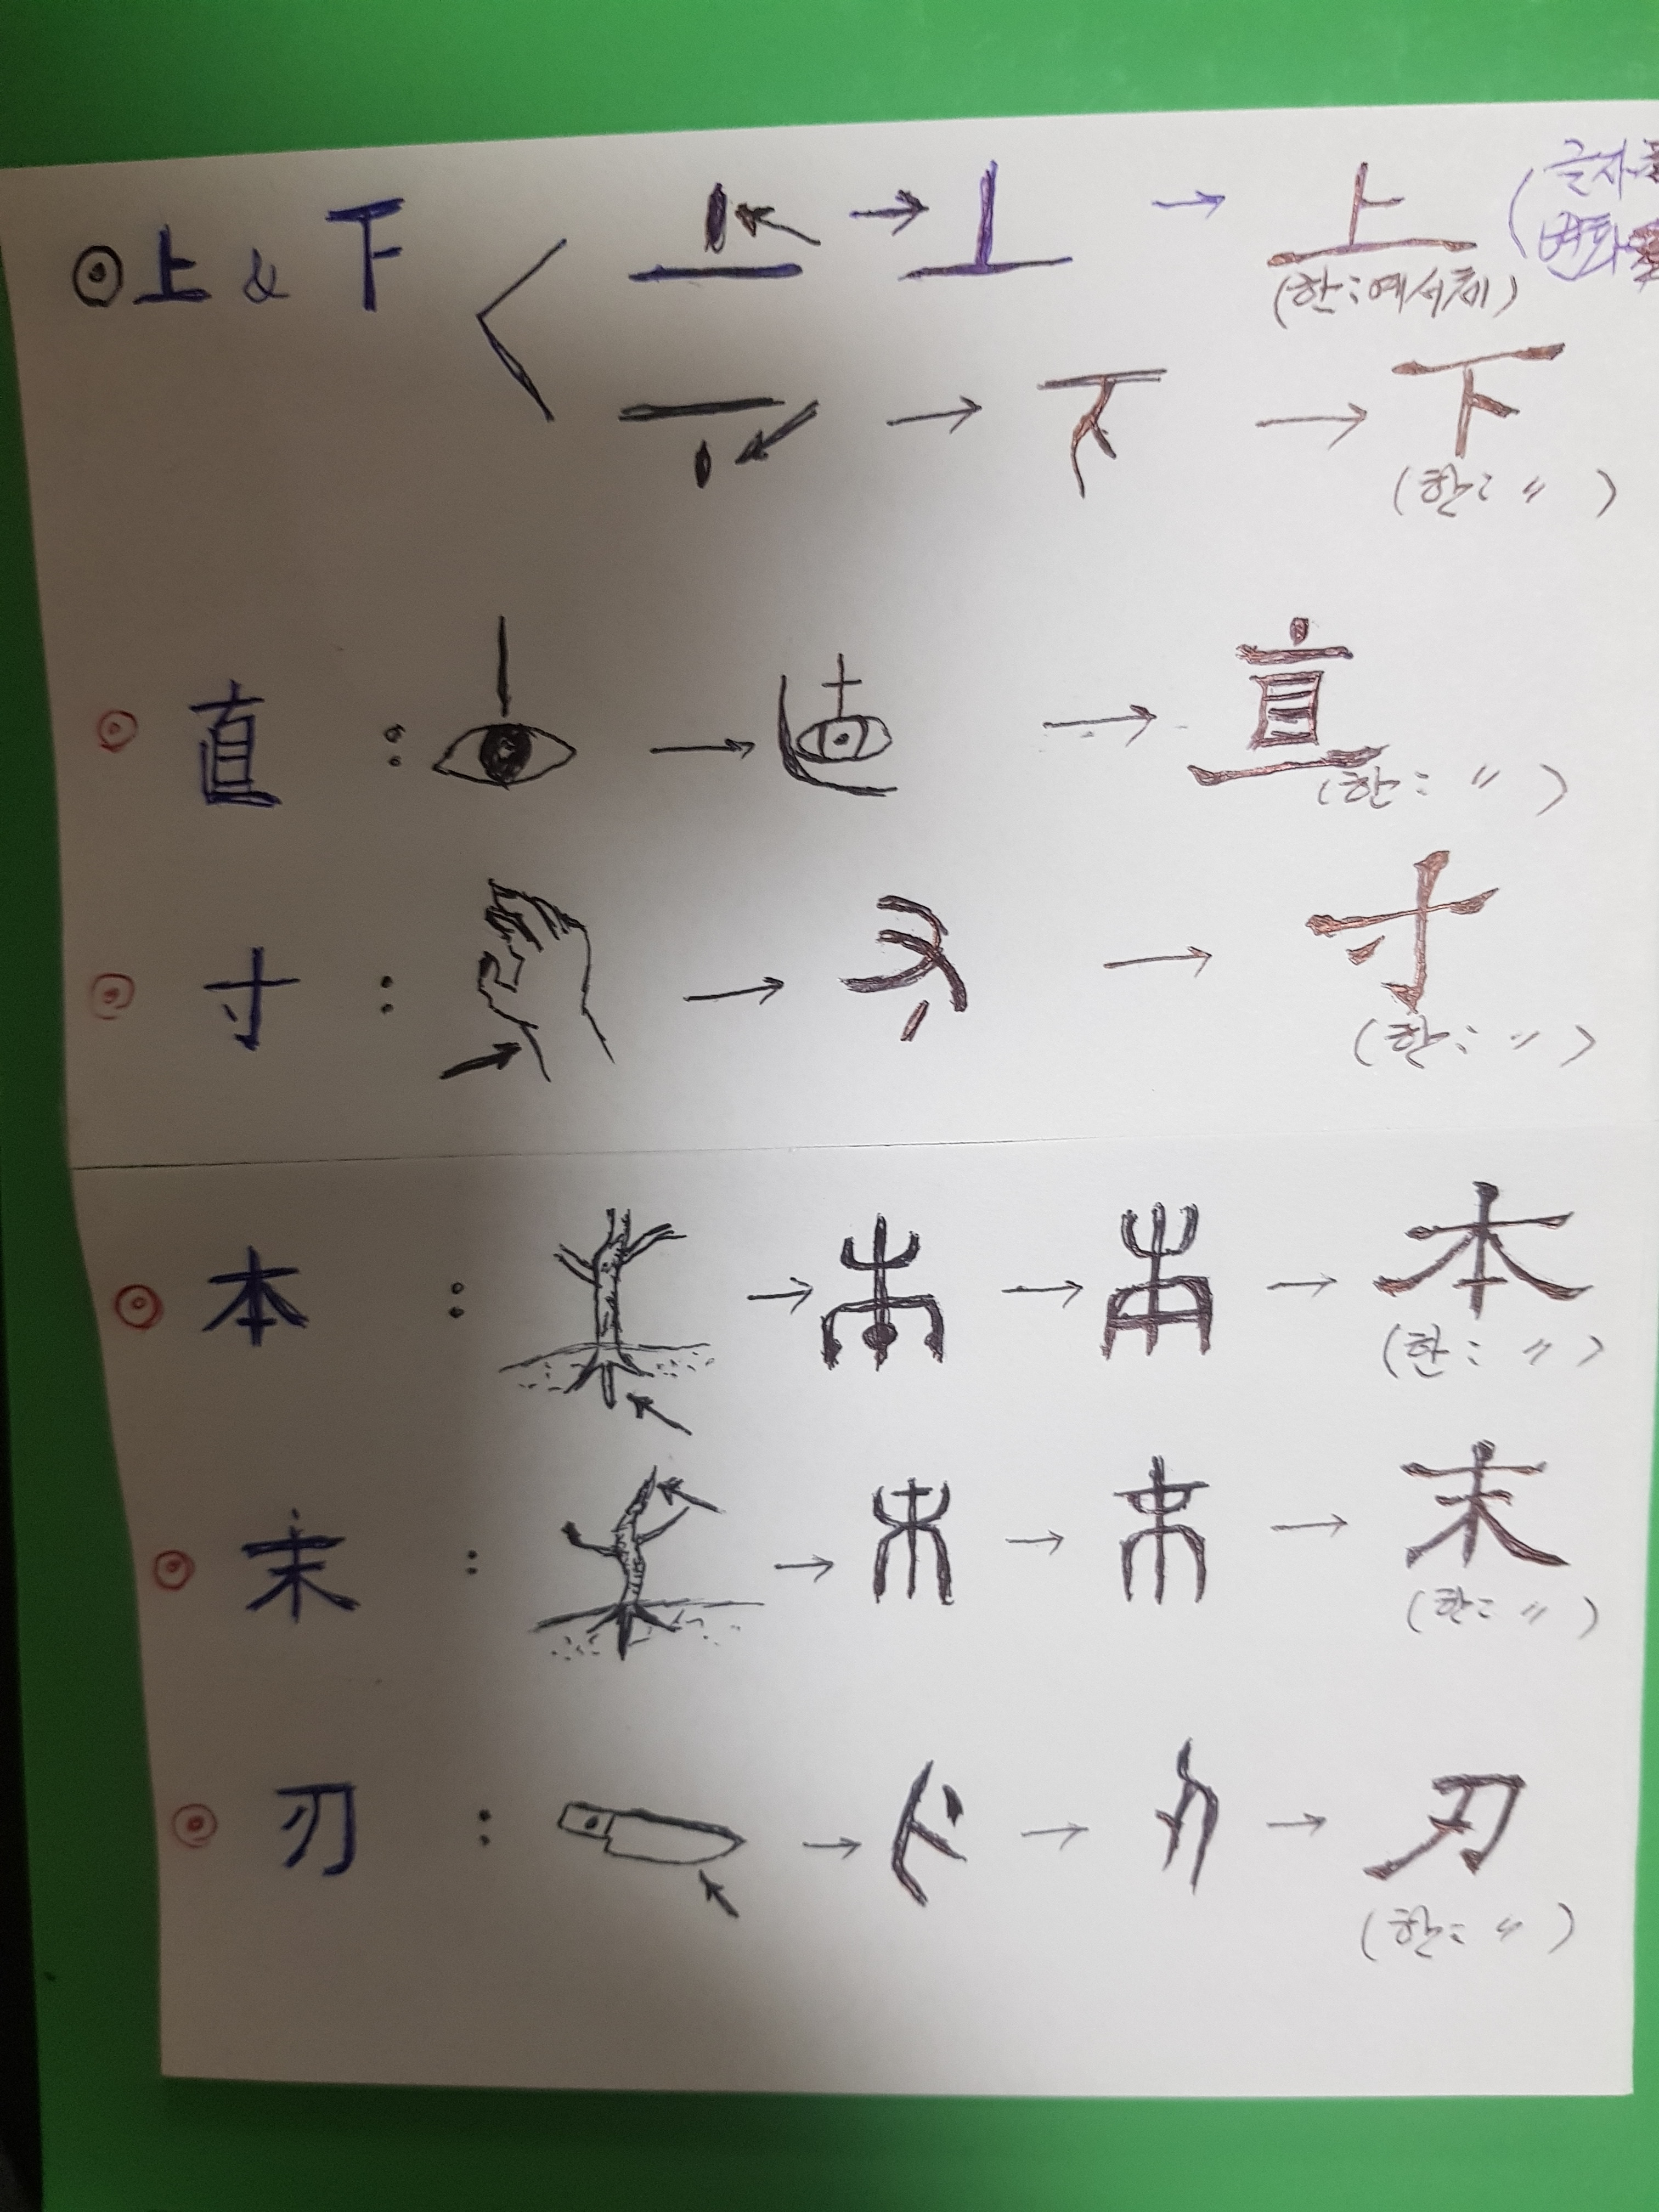 ⊙上 & 下 → → 上 (글자
변화
(한:예서체)
→ → 下
(한: 〃 )
⊙ 直 : → → 直
(한: 〃 )
⊙ 寸 : → → 寸
(한: 〃 )
⊙ 本 : → → → 本
(한: 〃 )
⊙ 末 : → → → 末
(한: 〃 )
⊙ 刃 : → → → 刃
(한: 〃 )